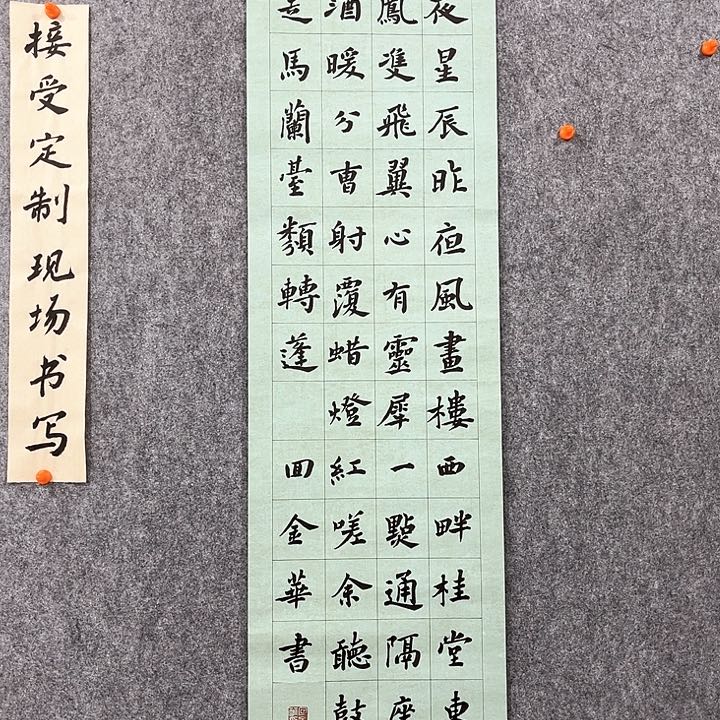 夜星辰昨亱風畫樓西畔桂堂東
鳳雙飛翼心有靈犀一點通隔座
酒暖分曺射覆蜡燈紅嗟余聽鼓
走馬蘭臺類轉蓬 囬金華書
接受定制现场书写